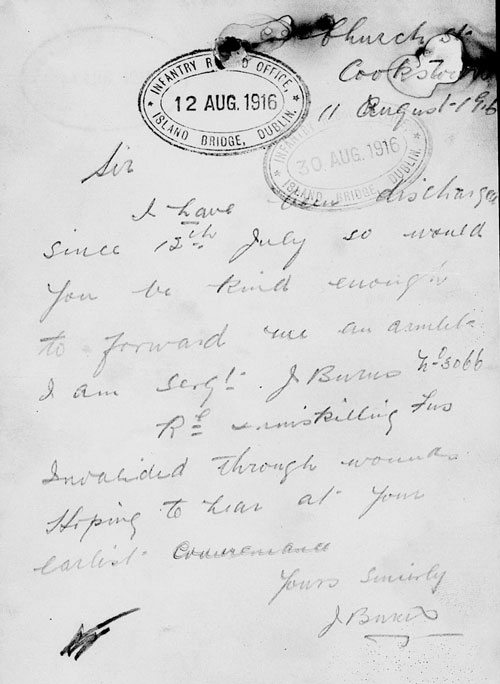 Church St
Cookstown
11 August 1916
INFANTRY RECORD OFFICE,
12 AUG. 1916
ISLAND BRIDGE, DUBLIN.
INFANTRY
30 AUG. 1916
ISLAND BRIDGE, DUBLIN.
Sir
I have been discharged
since 12th July so would
you be kind enough
to forward me an armlet
I am Sergt J Burns No 3066
Rl Inniskilling Fus
Invalided through wounds
Hoping to hear at your
earliest convenience
Yours Sincerly
J Burns